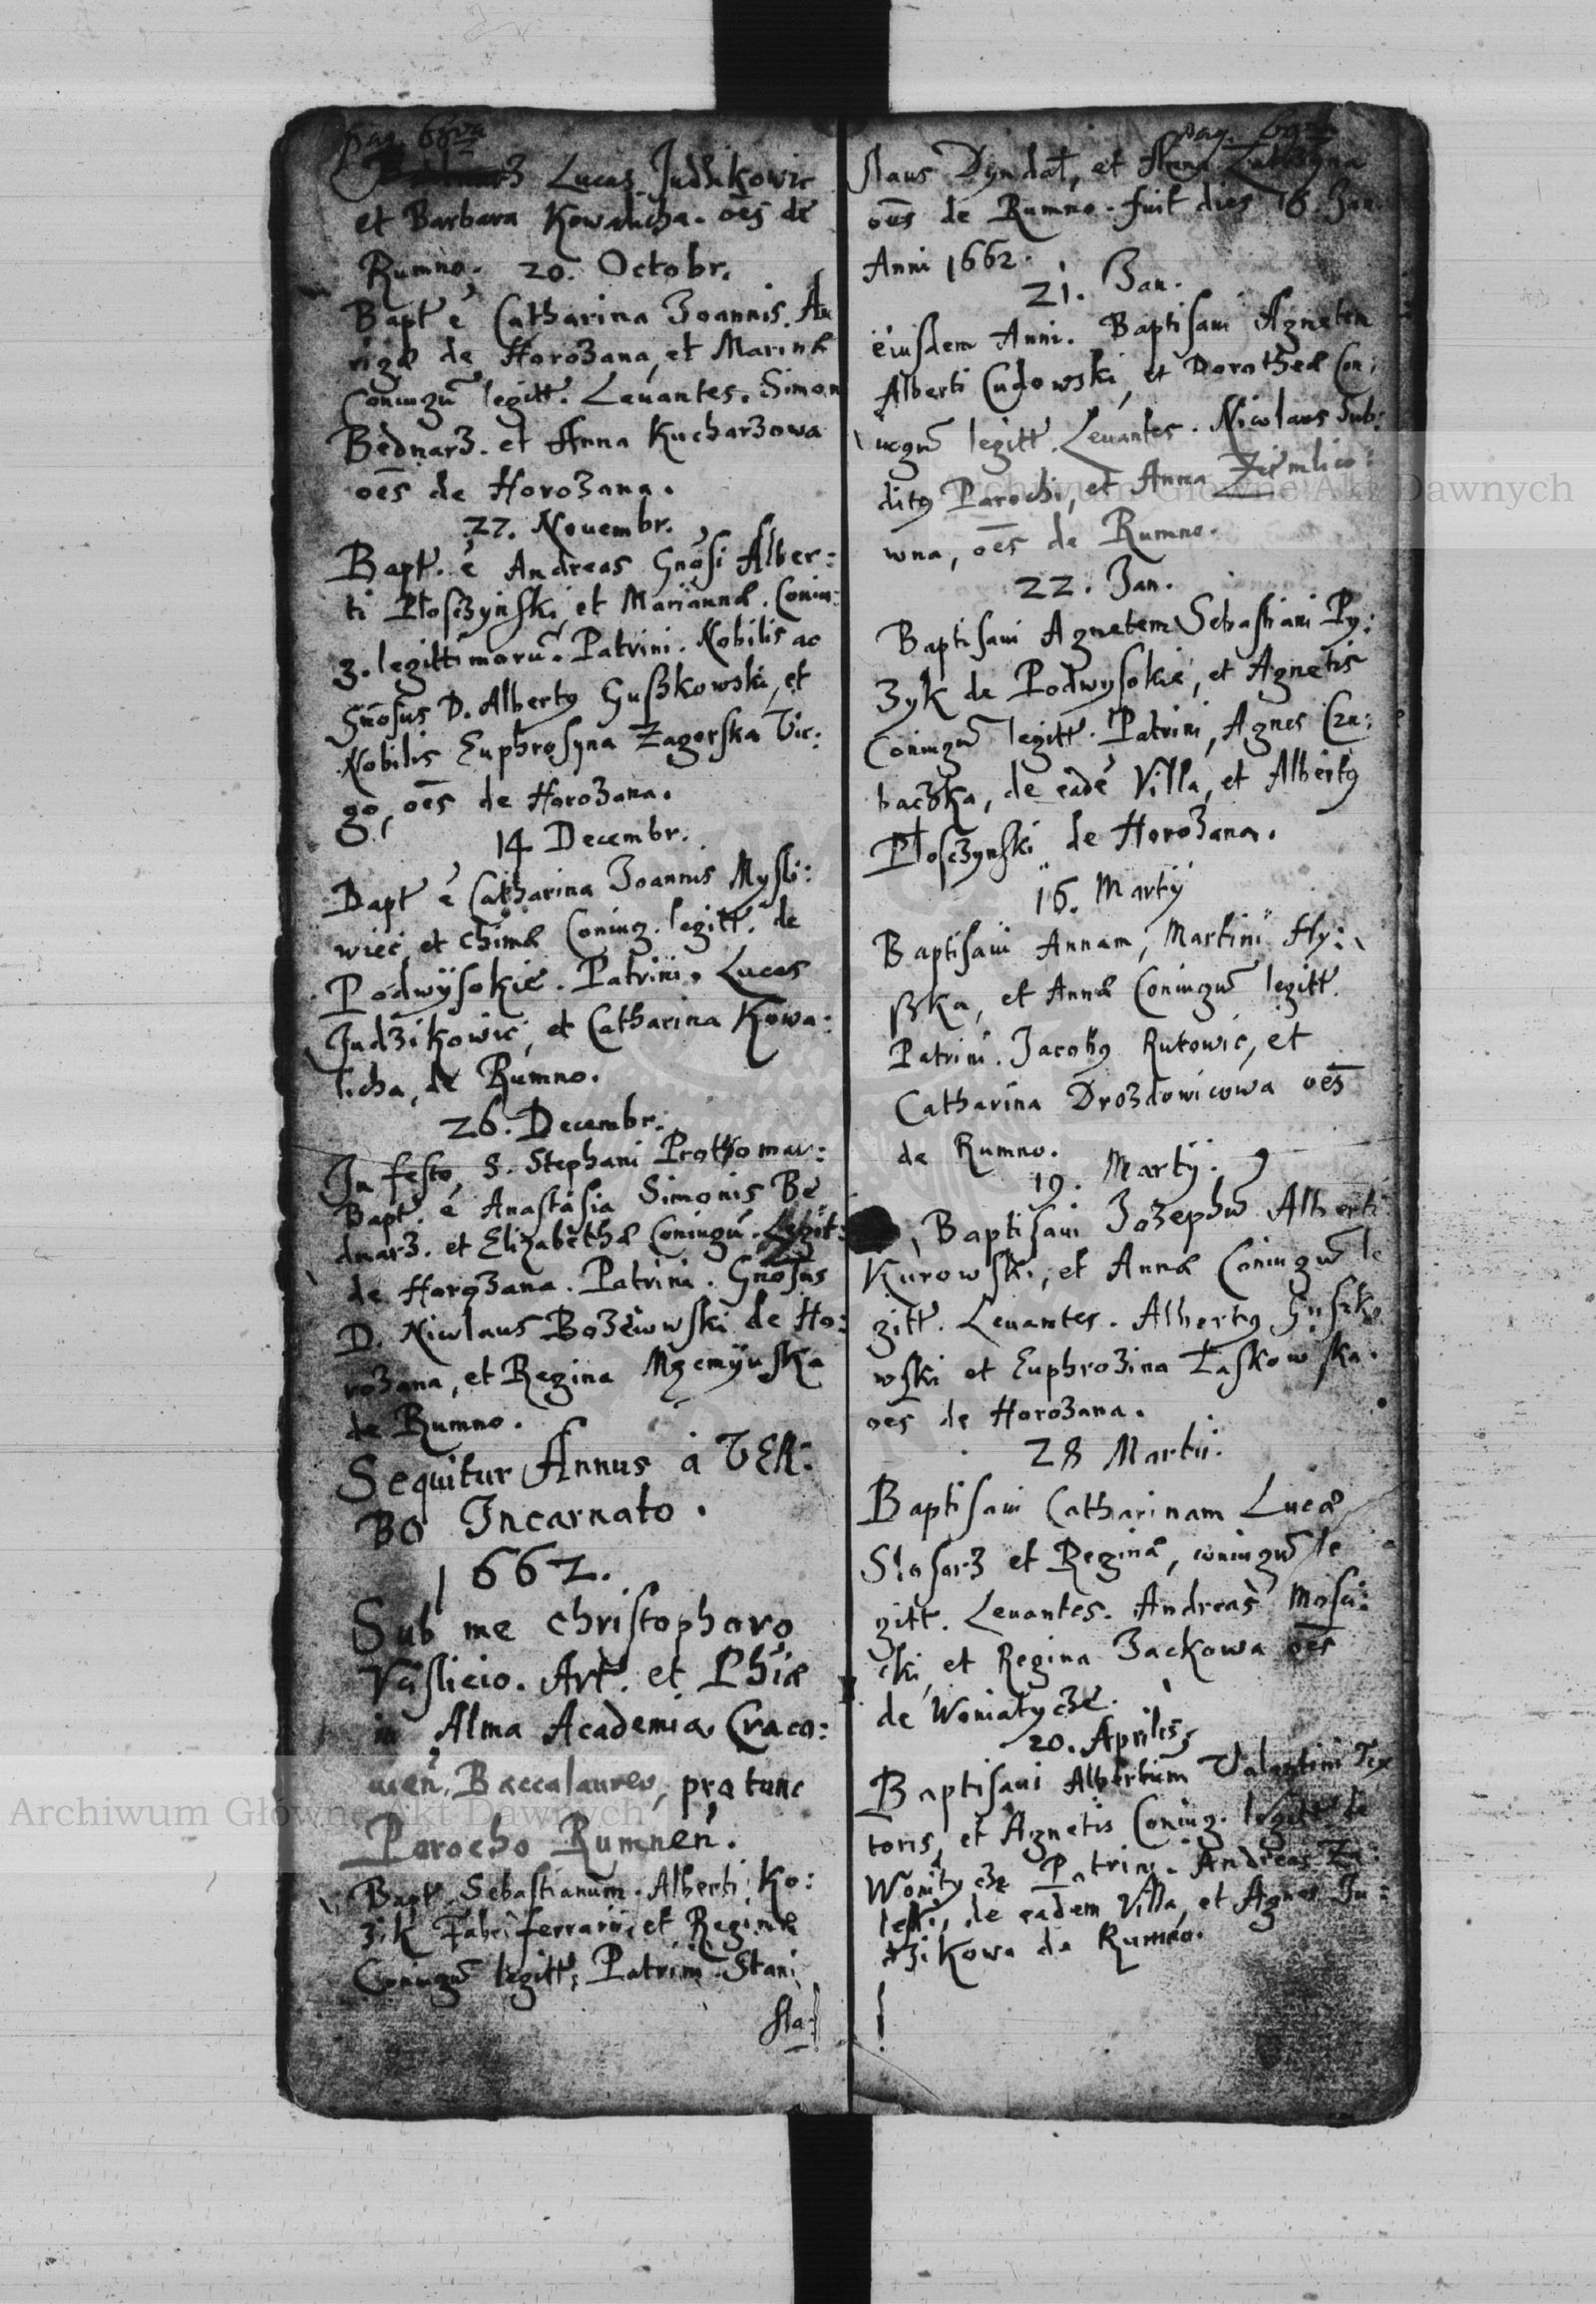 pag. 68va
Lucas Judzikowic
et Barbara Kowalicha. oēs de
Rumno. 20. Octobr.
Bapt ē Catharina Joannis Au
rigæ de Horozana, et Marinæ
Coniugū legitt. Leuantes. Simon
Bednarz. et Anna Kucharzowa
oēs de Horozana.
22. Nouembr.
Bapt. ē Andreas Gnōsi Alber:
ti Płosczynski, et Mariannæ. Coniu:
g. legittimorū. Patrini. Nobilis ac
Gnōsus D. Albertꝰ Guszkowski, et
Nobilis Euphrosyna Zagorska Vir:
go, oēs de Horozana.
14 Decembr.
Bapt ē Catharina Joannis Mysli:
wiec, et Chimæ Coniug. legitt. de
Podwysokie. Patrini. Lucas
Judzikowic, et Catharina Kowa:
licha, de Rumno.
26. Decembr.
In festo, S. Stephani Prothomar:
Bapt. ē Anastasia Simonis Be
dnarz. et Elizabethæ Coniugū. Legit:
de Horozana. Patrini. Gnōsus
D. Nicolaus Bozewski de Ho:
rozana, et Regina
de Rumno.
Sequitur Annus à VER:
BO Incarnato.
1662.
Sub me Christopharo
Art. et Phiæ
in Alma Academia Craco:
uień. Baccalaureo, pro tunc
Parocho Rumneń.
Bapt. Sebastianum. Alberti Ko:
zik Fabri ferrarii, et Reginæ
Coniugū legitt; Patrini. Stani
sla:
pag. 69
slaus Dyndał, et Anna
oēs de Rumno. fuit dies 16. Jan.
Anni 1662.
21. Jan.
eiusdem Anni. Baptisaui Agnetem
Alberti Cudowski, et Dorotheæ Con:
iugū legitt. Leuantes. Nicolaus Sub:
ditꝰ Parochi, et Anna Ziemlico:
wna, oēs de Rumno.
22. Jan.
Baptisaui Agnetem Sebastiani Py:
zyk de Podwysokie, et Agnetis
Coniugū legitt. Patrini, Agnes Czu:
baczka, de eadē Villa, et Albertꝰ
Płosczynski de Horozana.
16. Martÿ
Baptisaui Annam, Martini Hy:
szka, et Annæ Coniugū legitt.
Patrini. Jacobꝰ Rutowic, et
Catharina Drozdowicowa oēs
de Rumno.
19. Martÿ.
Baptisaui Jozephū Alberti
Kurowski, et Annæ Coniugū le
gitt. Leuantes. Albertꝰ Guszko
wski et Euphrozina Łaskowska.
oēs de Horozana.
28 Martii.
Baptisaui Catharinam Lucæ
Slosarz et Reginæ, coniugū le
gitt. Leuantes. Andreas Mosci:
cki, et Regina Jackowa oēs
de Woniatycze.
20. Aprilis,
Baptisaui Albertum Valentini Tex
toris, et Agnetis Coniug. legitt de
Patrini. Andreas
de eadem Villa, et Agnes Ju:
dzikowa de Rumno.
Archiwum Główne Akt Dawnych
Archiwum Główne Akt Dawnych